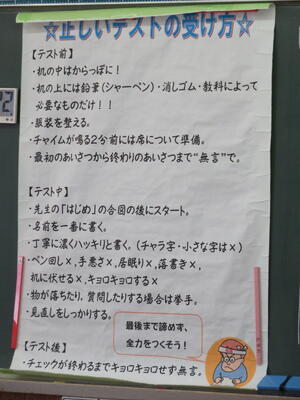 ☆正しいテストの受け方☆
【テスト前】
・机の中はからっぽに！
・机の上には鉛筆(シャーペン)・消しゴム・教科によって
必要なものだけ！！
・服装を整える。
・チャイムが鳴る2分前には席について準備。
・最初のあいさつから終わりのあいさつまで"無言"で。
【テスト中】
・先生の「はじめ」の合図の後にスタート。
・名前を一番に書く。
・丁寧に濃くハッキリと書く。(チャラ字・小さな字は×)
・ペン回し×,手悪さ×,居眠り×,落書き×,
机に伏せる×,キョロキョロする×
・物が落ちたり,質問したりする場合は挙手。
・見直しをしっかりする。
最後まで諦めず、
全力をつくそう！
【テスト後】
・チェックが終わるまでキョロキョロせず無言。